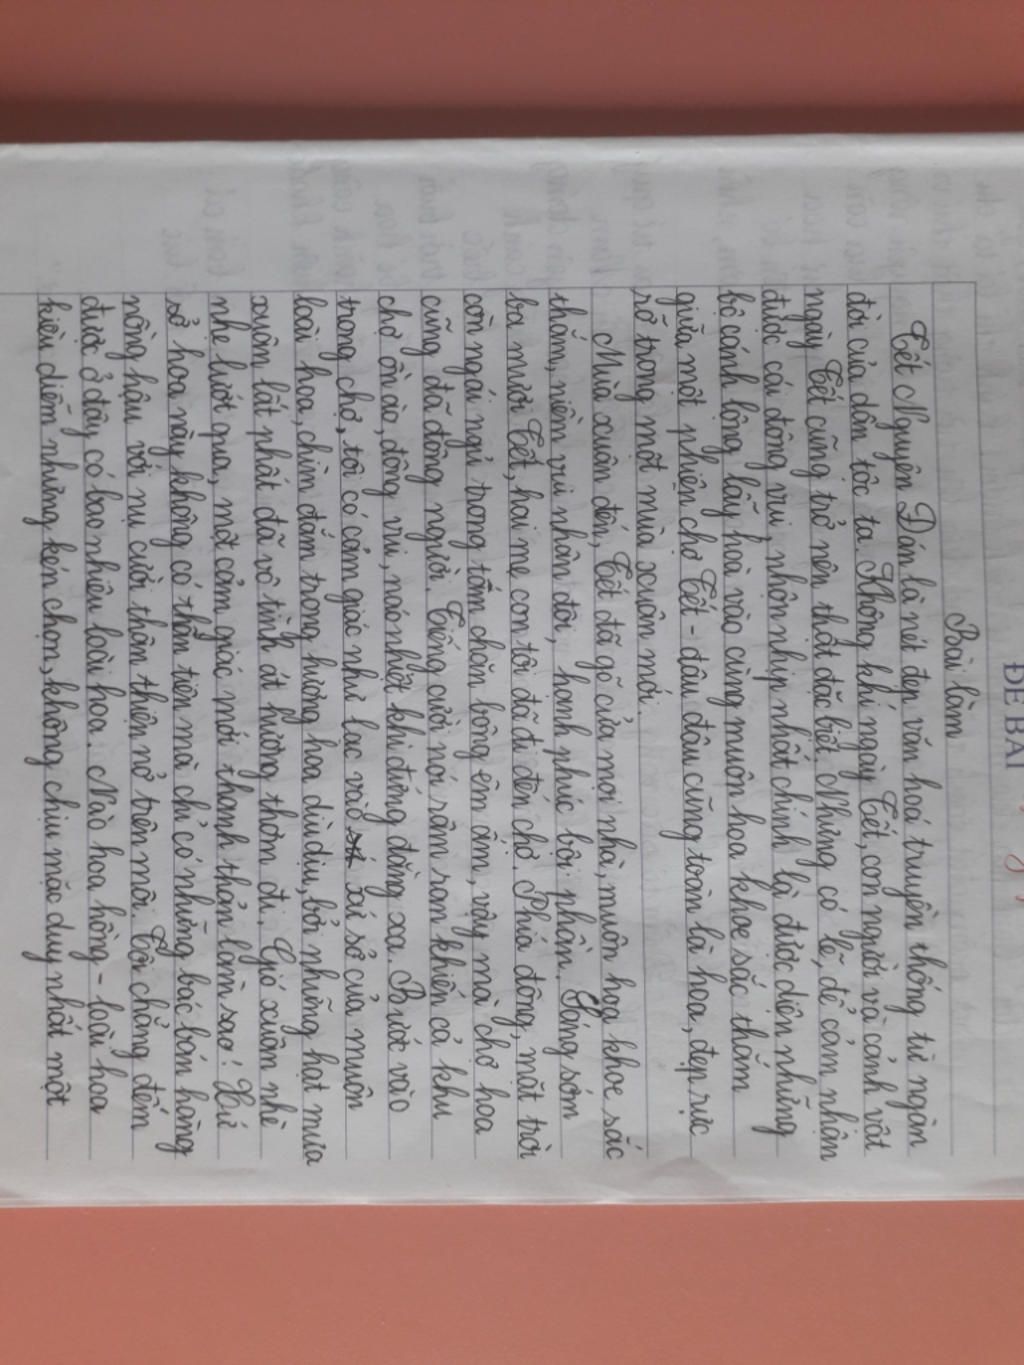 ĐỀ BÀI
Bài làm
Tết Nguyên Đán là nét đẹp văn hoá truyền thống từ ngàn
đời của dân tộc ta. Không khí ngày Tết, con người và cảnh vật
ngày Tết cũng trở nên thật đặc biệt. Nhưng có lẽ, để cảm nhận
được cái đông vui, nhộn nhịp nhất chính là được diện những
bộ cánh lộng lẫy hoà vào cùng muôn hoa khoe sắc thắm
giữa một phiên chợ Tết - đâu đâu cũng toàn là hoa, đẹp rực
rỡ trong một mùa xuân mới.
Mùa xuân đến, Tết đã gõ cửa mọi nhà, muôn hoa khoe sắc
thắm, niềm vui nhân đôi, hạnh phúc bội phần. Sáng sớm
ba mươi Tết, hai mẹ con tôi đã đi đến chợ. Phía đông, mặt trời
còn ngái ngủ trong tấm chăn bông êm ấm, vậy mà chợ hoa
cũng đã đông người. Tiếng cười nói râm ran khiến cả khu
chợ ồn ào, đông vui, náo nhiệt khi đứng đằng xa. Bước vào
trong chợ, tôi có cảm giác như lạc vào xứ sở của muôn
loài hoa, chìm đắm trong hương hoa dìu dịu, bởi những hạt mưa
xuân lất phất đã vô tình át hương thơm đi. Gió xuân nhè
nhẹ lướt qua, một cảm giác mới thanh thản làm sao! Xứ
sở hoa này không có thần tiên mà chỉ có những bác bán hàng
nồng hậu với nụ cười thân thiện nở trên môi. Tôi chẳng đếm
được ở đây có bao nhiêu loài hoa. Nào hoa hồng - loài hoa
kiều diễm nhưng kén chọn, không chịu mặc duy nhất một